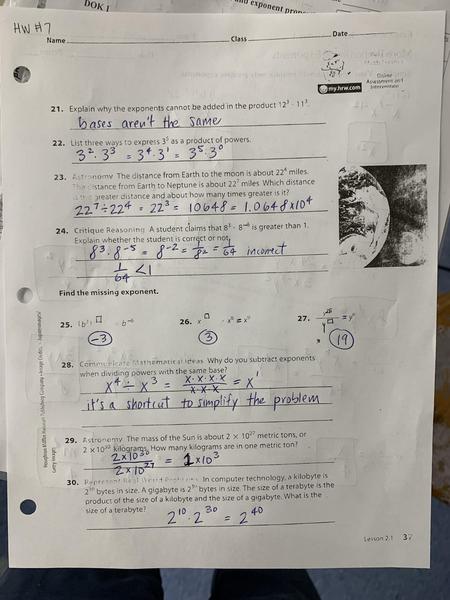 DOK 1
and exponent prop
HW #7
Name
Class
Date
Online
Assessment and
Intervention
my.hrw.com
21. Explain why the exponents cannot be added in the product 12³ · 11³.
bases aren't the same
22. List three ways to express 3⁵ as a product of powers.
3² · 3³ = 3⁴ · 3¹ = 3⁵ · 3⁰
23. Astronomy The distance from Earth to the moon is about 22⁴ miles.
The distance from Earth to Neptune is about 22⁷ miles. Which distance
is the greater distance and about how many times greater is it?
22⁷ ÷ 22⁴ = 22³ = 10648 = 1.0648 x 10⁴
24. Critique Reasoning A student claims that 8³ · 8⁻⁵ is greater than 1.
Explain whether the student is correct or not.
8³ · 8⁻⁵ = 8⁻² = 1/8² = 1/64 incorrect
1/64 < 1
Find the missing exponent.
25. (b²)□ = b⁻⁶
26. x□ · x⁶ = x⁹
27.
-3
3
19
28. Communicate Mathematical Ideas Why do you subtract exponents
when dividing powers with the same base?
x⁴ ÷ x³ = x·x·x·x / x·x·x = x¹
it's a shortcut to simplify the problem
29. Astronomy The mass of the Sun is about 2 × 10²⁷ metric tons, or
2 × 10³⁰ kilograms. How many kilograms are in one metric ton?
2x10³⁰ / 2x10²⁷ = 1x10³
30. Represent Real-World Problems In computer technology, a kilobyte is
2¹⁰ bytes in size. A gigabyte is 2³⁰ bytes in size. The size of a terabyte is the
product of the size of a kilobyte and the size of a gigabyte. What is the
size of a terabyte?
2¹⁰ · 2³⁰ = 2⁴⁰
Lesson 2.1 37